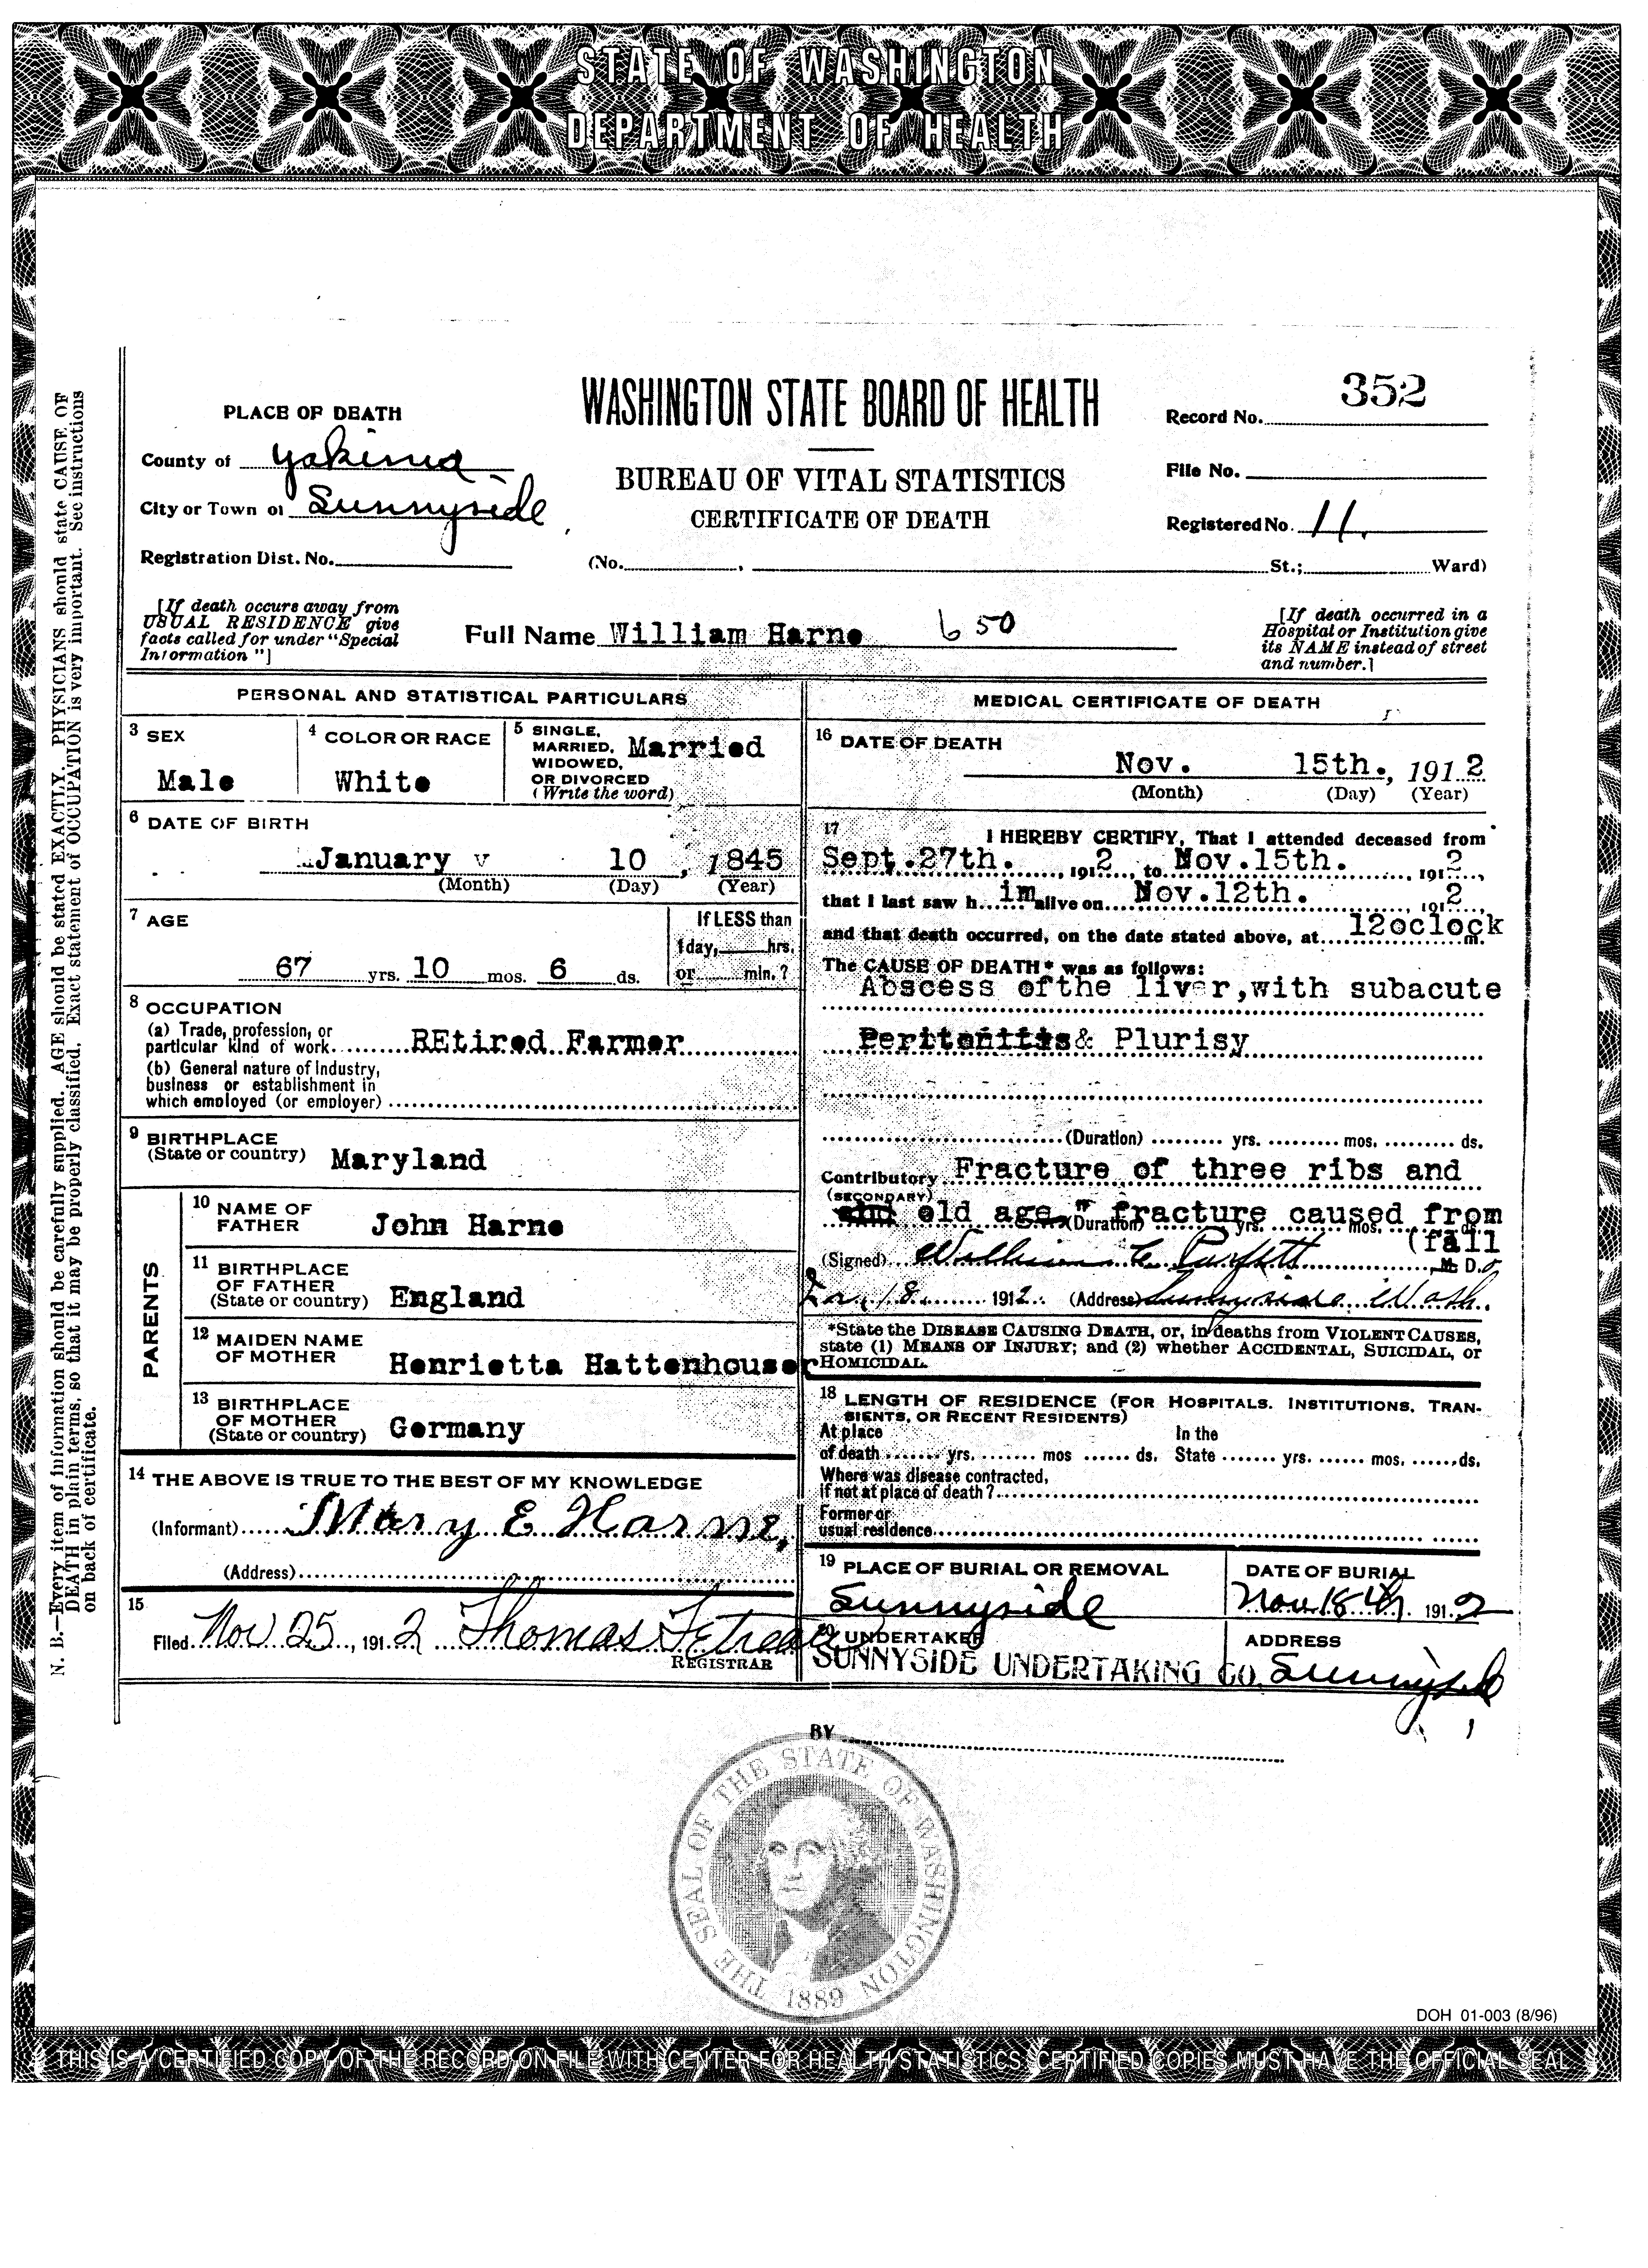 STATE OF WASHINGTON
DEPARTMENT OF HEALTH
N. B.—Every item of information should be carefully supplied. AGE should be stated EXACTLY. PHYSICIANS should state CAUSE OF
DEATH in plain terms, so that it may be properly classified. Exact statement of OCCUPATION is very important. See instructions
on back of certificate.
PLACE OF DEATH
County of Yakima
City or Town of Sunnyside
Registration Dist. No.
WASHINGTON STATE BOARD OF HEALTH
BUREAU OF VITAL STATISTICS
CERTIFICATE OF DEATH
(No. , St.; Ward)
Record No. 352
File No.
Registered No. 11.
[If death occurs away from
USUAL RESIDENCE give
facts called for under "Special
Information "]
Full Name William Harne 650
[If death occurred in a
Hospital or Institution give
its NAME instead of street
and number.]
PERSONAL AND STATISTICAL PARTICULARS
3 SEX
Male
4 COLOR OR RACE
White
5 SINGLE,
MARRIED,
WIDOWED,
OR DIVORCED
(Write the word)
Married
6 DATE OF BIRTH
January v 10 , 1845
(Month) (Day) (Year)
7 AGE
67 yrs. 10 mos. 6 ds.
If LESS than
1 day, hrs.
or min. ?
8 OCCUPATION
(a) Trade, profession, or
particular kind of work REtired Farmer
(b) General nature of Industry,
business or establishment in
which employed (or employer)
9 BIRTHPLACE
(State or country) Maryland
PARENTS
10 NAME OF
FATHER John Harne
11 BIRTHPLACE
OF FATHER
(State or country) England
12 MAIDEN NAME
OF MOTHER Henrietta Hattenhouser
13 BIRTHPLACE
OF MOTHER
(State or country) Germany
14 THE ABOVE IS TRUE TO THE BEST OF MY KNOWLEDGE
(Informant) Mary E Harne,
(Address)
15
Filed Nov 25, 1912 Thomas
REGISTRAR
MEDICAL CERTIFICATE OF DEATH
16 DATE OF DEATH
Nov. 15th., 1912
(Month) (Day) (Year)
17 I HEREBY CERTIFY, That I attended deceased from
Sept.27th. , 1912 , to Nov.15th. , 1912 ,
that I last saw h im alive on Nov.12th. 1912 ,
and that death occurred, on the date stated above, at 12oclock m.
The CAUSE OF DEATH* was as follows:
Abscess ofthe liver,with subacute
Peritonitis& Plurisy
(Duration) yrs. mos. ds.
Contributory Fracture of three ribs and
(SECONDARY)
old age, " fracture caused from
(Duration) yrs. mos. ds.
(fall
(Signed) William C. M. D.
18 1912. (Address) Sunnyside Wash.
*State the DISEASE CAUSING DEATH, or, in deaths from VIOLENT CAUSES,
state (1) MEANS OF INJURY; and (2) whether ACCIDENTAL, SUICIDAL, or
HOMICIDAL.
18 LENGTH OF RESIDENCE (FOR HOSPITALS. INSTITUTIONS, TRAN-
SIENTS, OR RECENT RESIDENTS)
At place In the
of death yrs. mos ds. State yrs. mos. ds.
Where was disease contracted,
If not at place of death ?
Former or
usual residence
19 PLACE OF BURIAL OR REMOVAL
Sunnyside
DATE OF BURIAL
Nov. 18th. 1912
20 UNDERTAKER
SUNNYSIDE UNDERTAKING CO.
ADDRESS
Sunnyside
BY
THE SEAL OF THE STATE OF WASHINGTON
1889
DOH 01-003 (8/96)
THIS IS A CERTIFIED COPY OF THE RECORD ON FILE WITH CENTER FOR HEALTH STATISTICS. CERTIFIED COPIES MUST HAVE THE OFFICIAL SEAL.